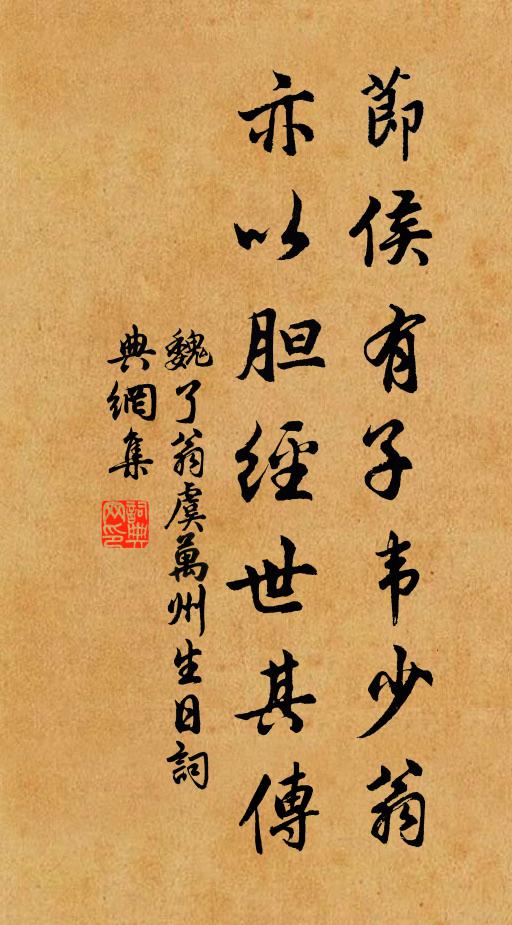 節侯有子韦少翁
亦以胆經世其傳
魏了翁虞萬州生日詞
典網集
詞典
网印